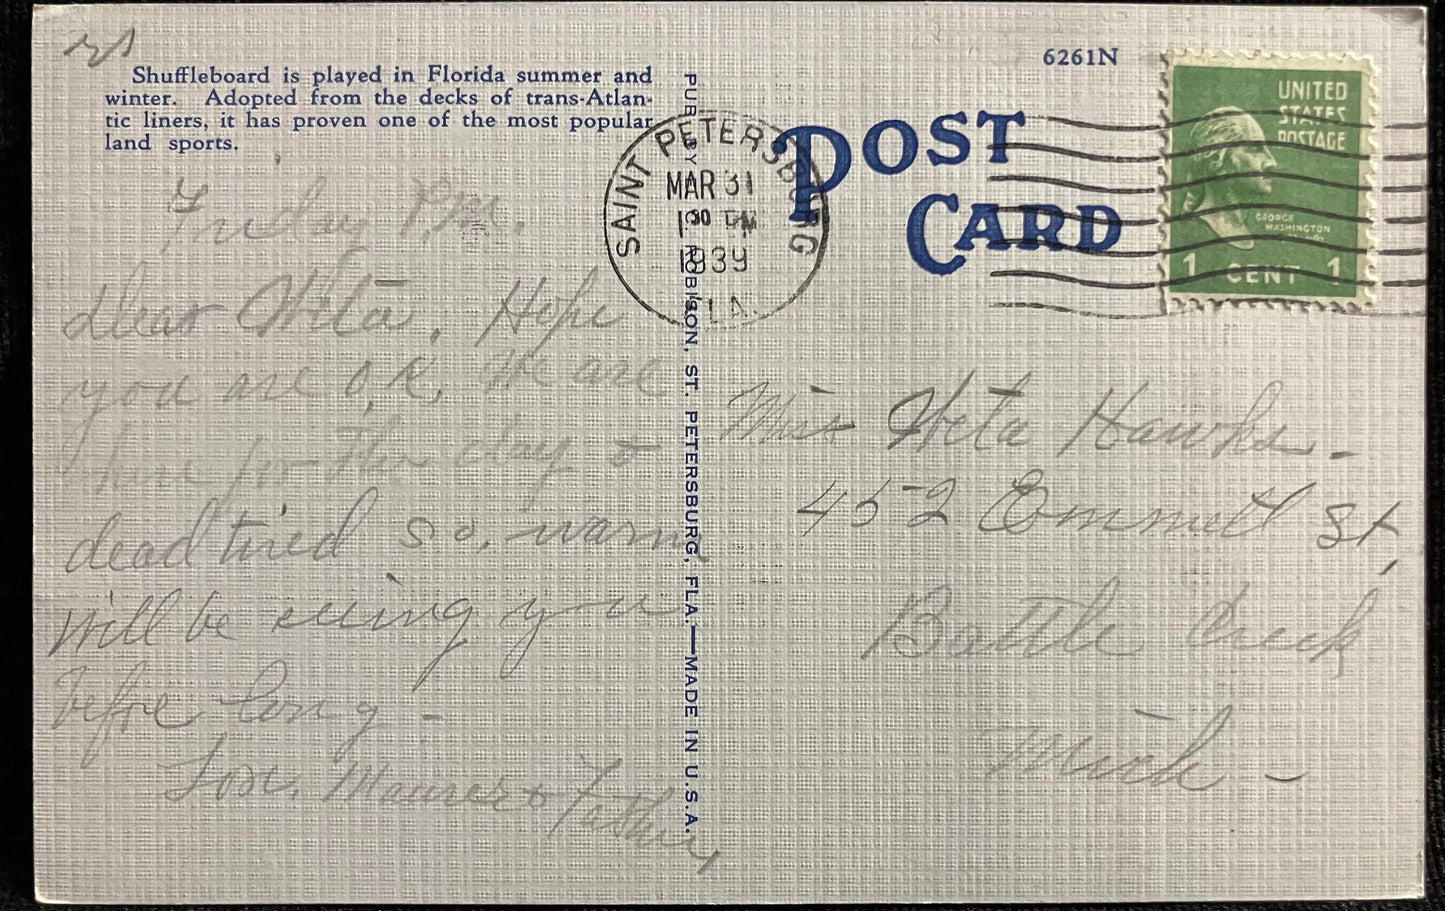 Shuffleboard is played in Florida summer and
winter. Adopted from the decks of trans-Atlan-
tic liners, it has proven one of the most popular
land sports.
Friday P.M.
Dear Neta, Hope
you are O.K. We are
here for the day &
dead tired so warm
will be seeing you
before long -
Love, & Father
PUB. BY ROBISON, ST. PETERSBURG, FLA.—MADE IN U.S.A.
SAINT PETERSBURG
MAR 31
1 30 PM
1939
FLA.
6261N
POST
CARD
UNITED
STATES
POSTAGE
GEORGE
WASHINGTON
1 CENT 1
Miss Neta Hawks -
452 Emmett St,
Battle Creek
Mich -